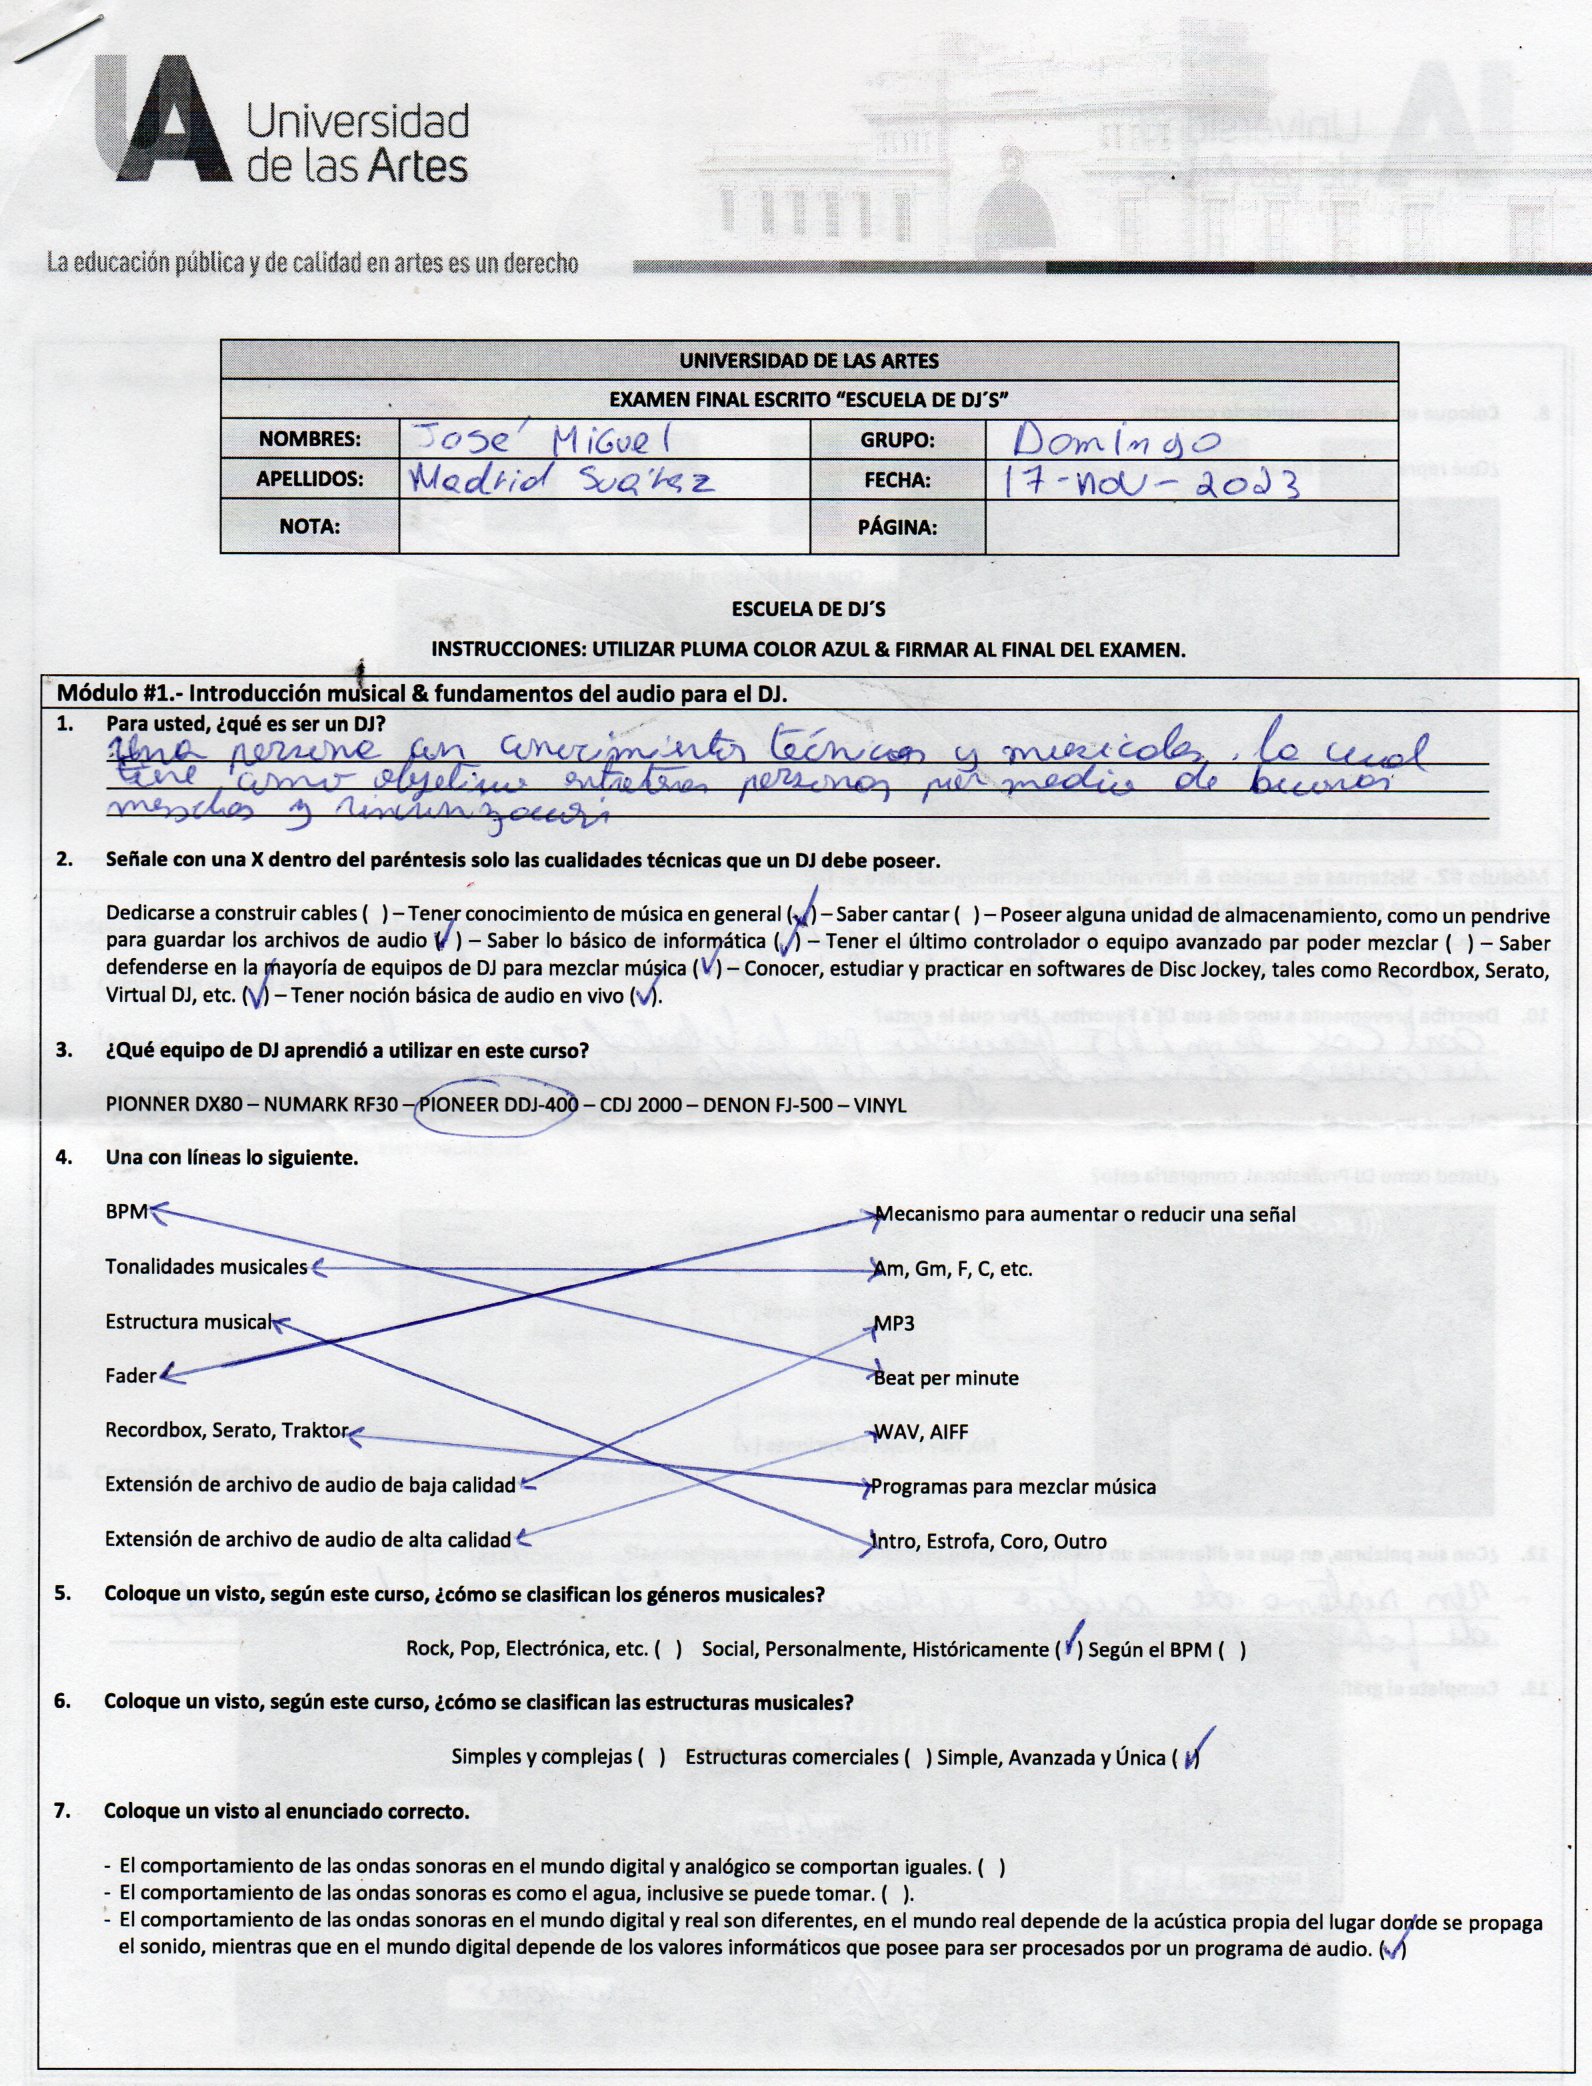 UA Universidad
de las Artes
La educación pública y de calidad en artes es un derecho
UNIVERSIDAD DE LAS ARTES
EXAMEN FINAL ESCRITO “ESCUELA DE DJ´S”
NOMBRES: José Miguel GRUPO: Domingo
APELLIDOS: Madrid Suárez FECHA: 17-nov-2023
NOTA: PÁGINA:
ESCUELA DE DJ´S
INSTRUCCIONES: UTILIZAR PLUMA COLOR AZUL & FIRMAR AL FINAL DEL EXAMEN.
Módulo #1.- Introducción musical & fundamentos del audio para el DJ.
1. Para usted, ¿qué es ser un DJ?
Una persona con conocimientos técnicos y musicales. la cual
tiene como objetivo personas por medio de buenas
mesclas y
2. Señale con una X dentro del paréntesis solo las cualidades técnicas que un DJ debe poseer.
Dedicarse a construir cables ( ) – Tener conocimiento de música en general (✓) – Saber cantar ( ) – Poseer alguna unidad de almacenamiento, como un pendrive
para guardar los archivos de audio (✓) – Saber lo básico de informática (✓) – Tener el último controlador o equipo avanzado par poder mezclar ( ) – Saber
defenderse en la mayoría de equipos de DJ para mezclar música (✓) – Conocer, estudiar y practicar en softwares de Disc Jockey, tales como Recordbox, Serato,
Virtual DJ, etc. (✓) – Tener noción básica de audio en vivo (✓).
3. ¿Qué equipo de DJ aprendió a utilizar en este curso?
PIONNER DX80 – NUMARK RF30 – PIONEER DDJ-400 – CDJ 2000 – DENON FJ-500 – VINYL
4. Una con líneas lo siguiente.
BPM Mecanismo para aumentar o reducir una señal
Tonalidades musicales Am, Gm, F, C, etc.
Estructura musical MP3
Fader Beat per minute
Recordbox, Serato, Traktor WAV, AIFF
Extensión de archivo de audio de baja calidad Programas para mezclar música
Extensión de archivo de audio de alta calidad Intro, Estrofa, Coro, Outro
5. Coloque un visto, según este curso, ¿cómo se clasifican los géneros musicales?
Rock, Pop, Electrónica, etc. ( ) Social, Personalmente, Históricamente (✓) Según el BPM ( )
6. Coloque un visto, según este curso, ¿cómo se clasifican las estructuras musicales?
Simples y complejas ( ) Estructuras comerciales ( ) Simple, Avanzada y Única (✓)
7. Coloque un visto al enunciado correcto.
- El comportamiento de las ondas sonoras en el mundo digital y analógico se comportan iguales. ( )
- El comportamiento de las ondas sonoras es como el agua, inclusive se puede tomar. ( ).
- El comportamiento de las ondas sonoras en el mundo digital y real son diferentes, en el mundo real depende de la acústica propia del lugar donde se propaga
el sonido, mientras que en el mundo digital depende de los valores informáticos que posee para ser procesados por un programa de audio. (✓)